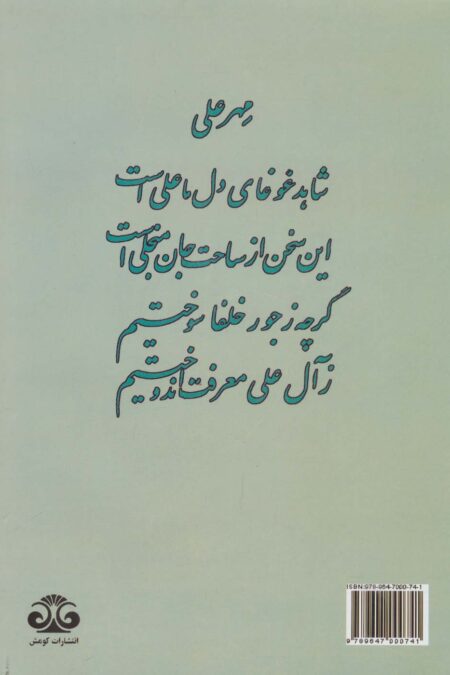 مهر علی
شاهد غوغای دل ما علی است
این سخن از ساحت جان منجلی است
گرچه ز جور خلفا سوختیم
ز آل علی معرفت اندوختیم
ISBN: 978-964-7000-74-1
9 789647 000741
انتشارات کومش